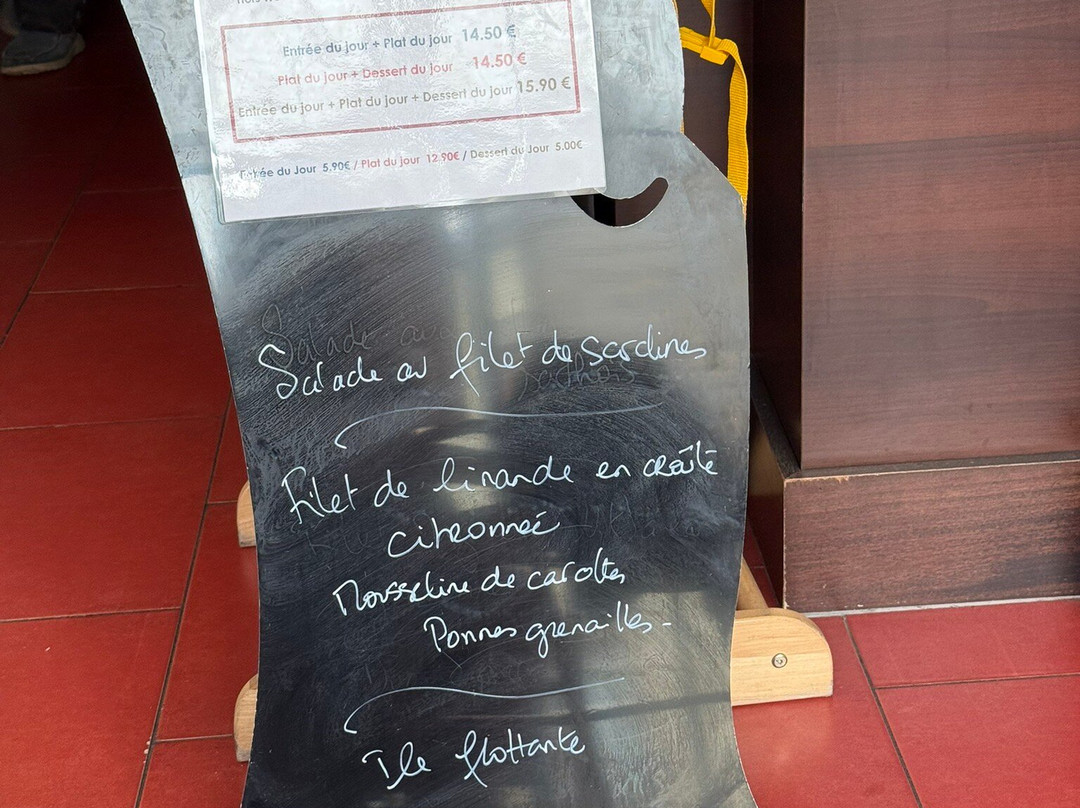 Entrée du jour + Plat du jour 14.50 €
Plat du jour + Dessert du jour 14.50 €
Entrée du jour + Plat du jour + Dessert du jour 15.90 €
Entrée du Jour 5.90€ / Plat du jour 12.90€ / Dessert du Jour 5.00€
Salade au filet de sardines
Filet de limande en croûte
citronneé
Mousseline de carottes
Pommes grenailles -
Ile flottante